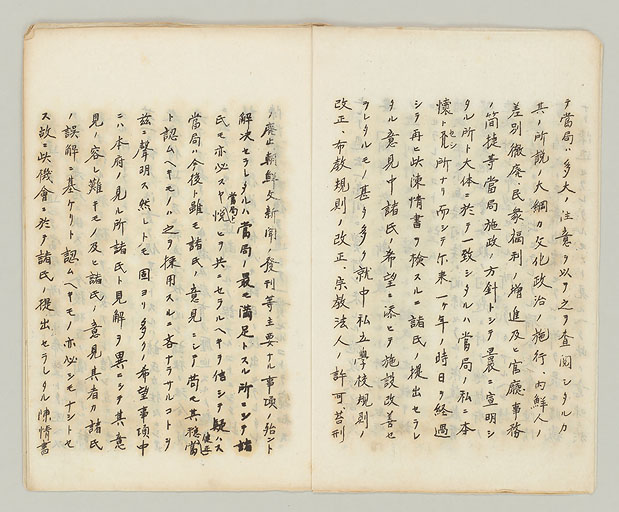 テ當局ハ多大ノ注意ヲ以テ之ヲ査閲シタルカ
其ノ所説ノ大綱カ文化政治ノ施行、内鮮人ノ
差別撤廃、民衆福利ノ増進及ヒ官廳事務
ノ簡捷等當局施政ノ方針トシテ曩ニ宣明シ
タル所ト大体ニ於テ一致シタルハ當局ノ私ニ本
懐トセシ所ナリ而シテ尓来一ケ年ノ時日ヲ経過
シテ再ヒ此陳情書ヲ検スルニ諸氏ノ提出セラレ
タル意見中諸氏ノ希望ニ添ヒテ施設改善セ
ラレタルモノ甚タ多ク就中私立學校規則ノ
改正、布教規則ノ改正、宗教法人ノ許可笞刑
ノ廃止朝鮮文新聞ノ發刊等主要ナル事項ノ殆ント
解決セラレタルハ當局ノ最モ満足トスル所ニシテ諸
氏モ亦必スヤ當局ト悦ヒヲ共ニセラルヘキヲ信シテ疑ハス
當局ハ今後ト雖モ諸氏ノ意見ニシテ尚モ其穏當
ト認ムヘキモノハ之ヲ採用スルニ吝ナラサルコトヲ
茲ニ聲明ス然レトモ固ヨリ多クノ希望事項中
ニハ本府ノ見ル所諸氏ト見解ヲ異ニシテ其意
見ノ容レ難キモノ及ヒ諸氏ノ意見其者カ諸氏
ノ誤解ニ基ケリト認ムヘキモノ亦必シモナシトセ
ス故ニ此機會ニ於テ諸氏ノ提出セラレタル陳情書